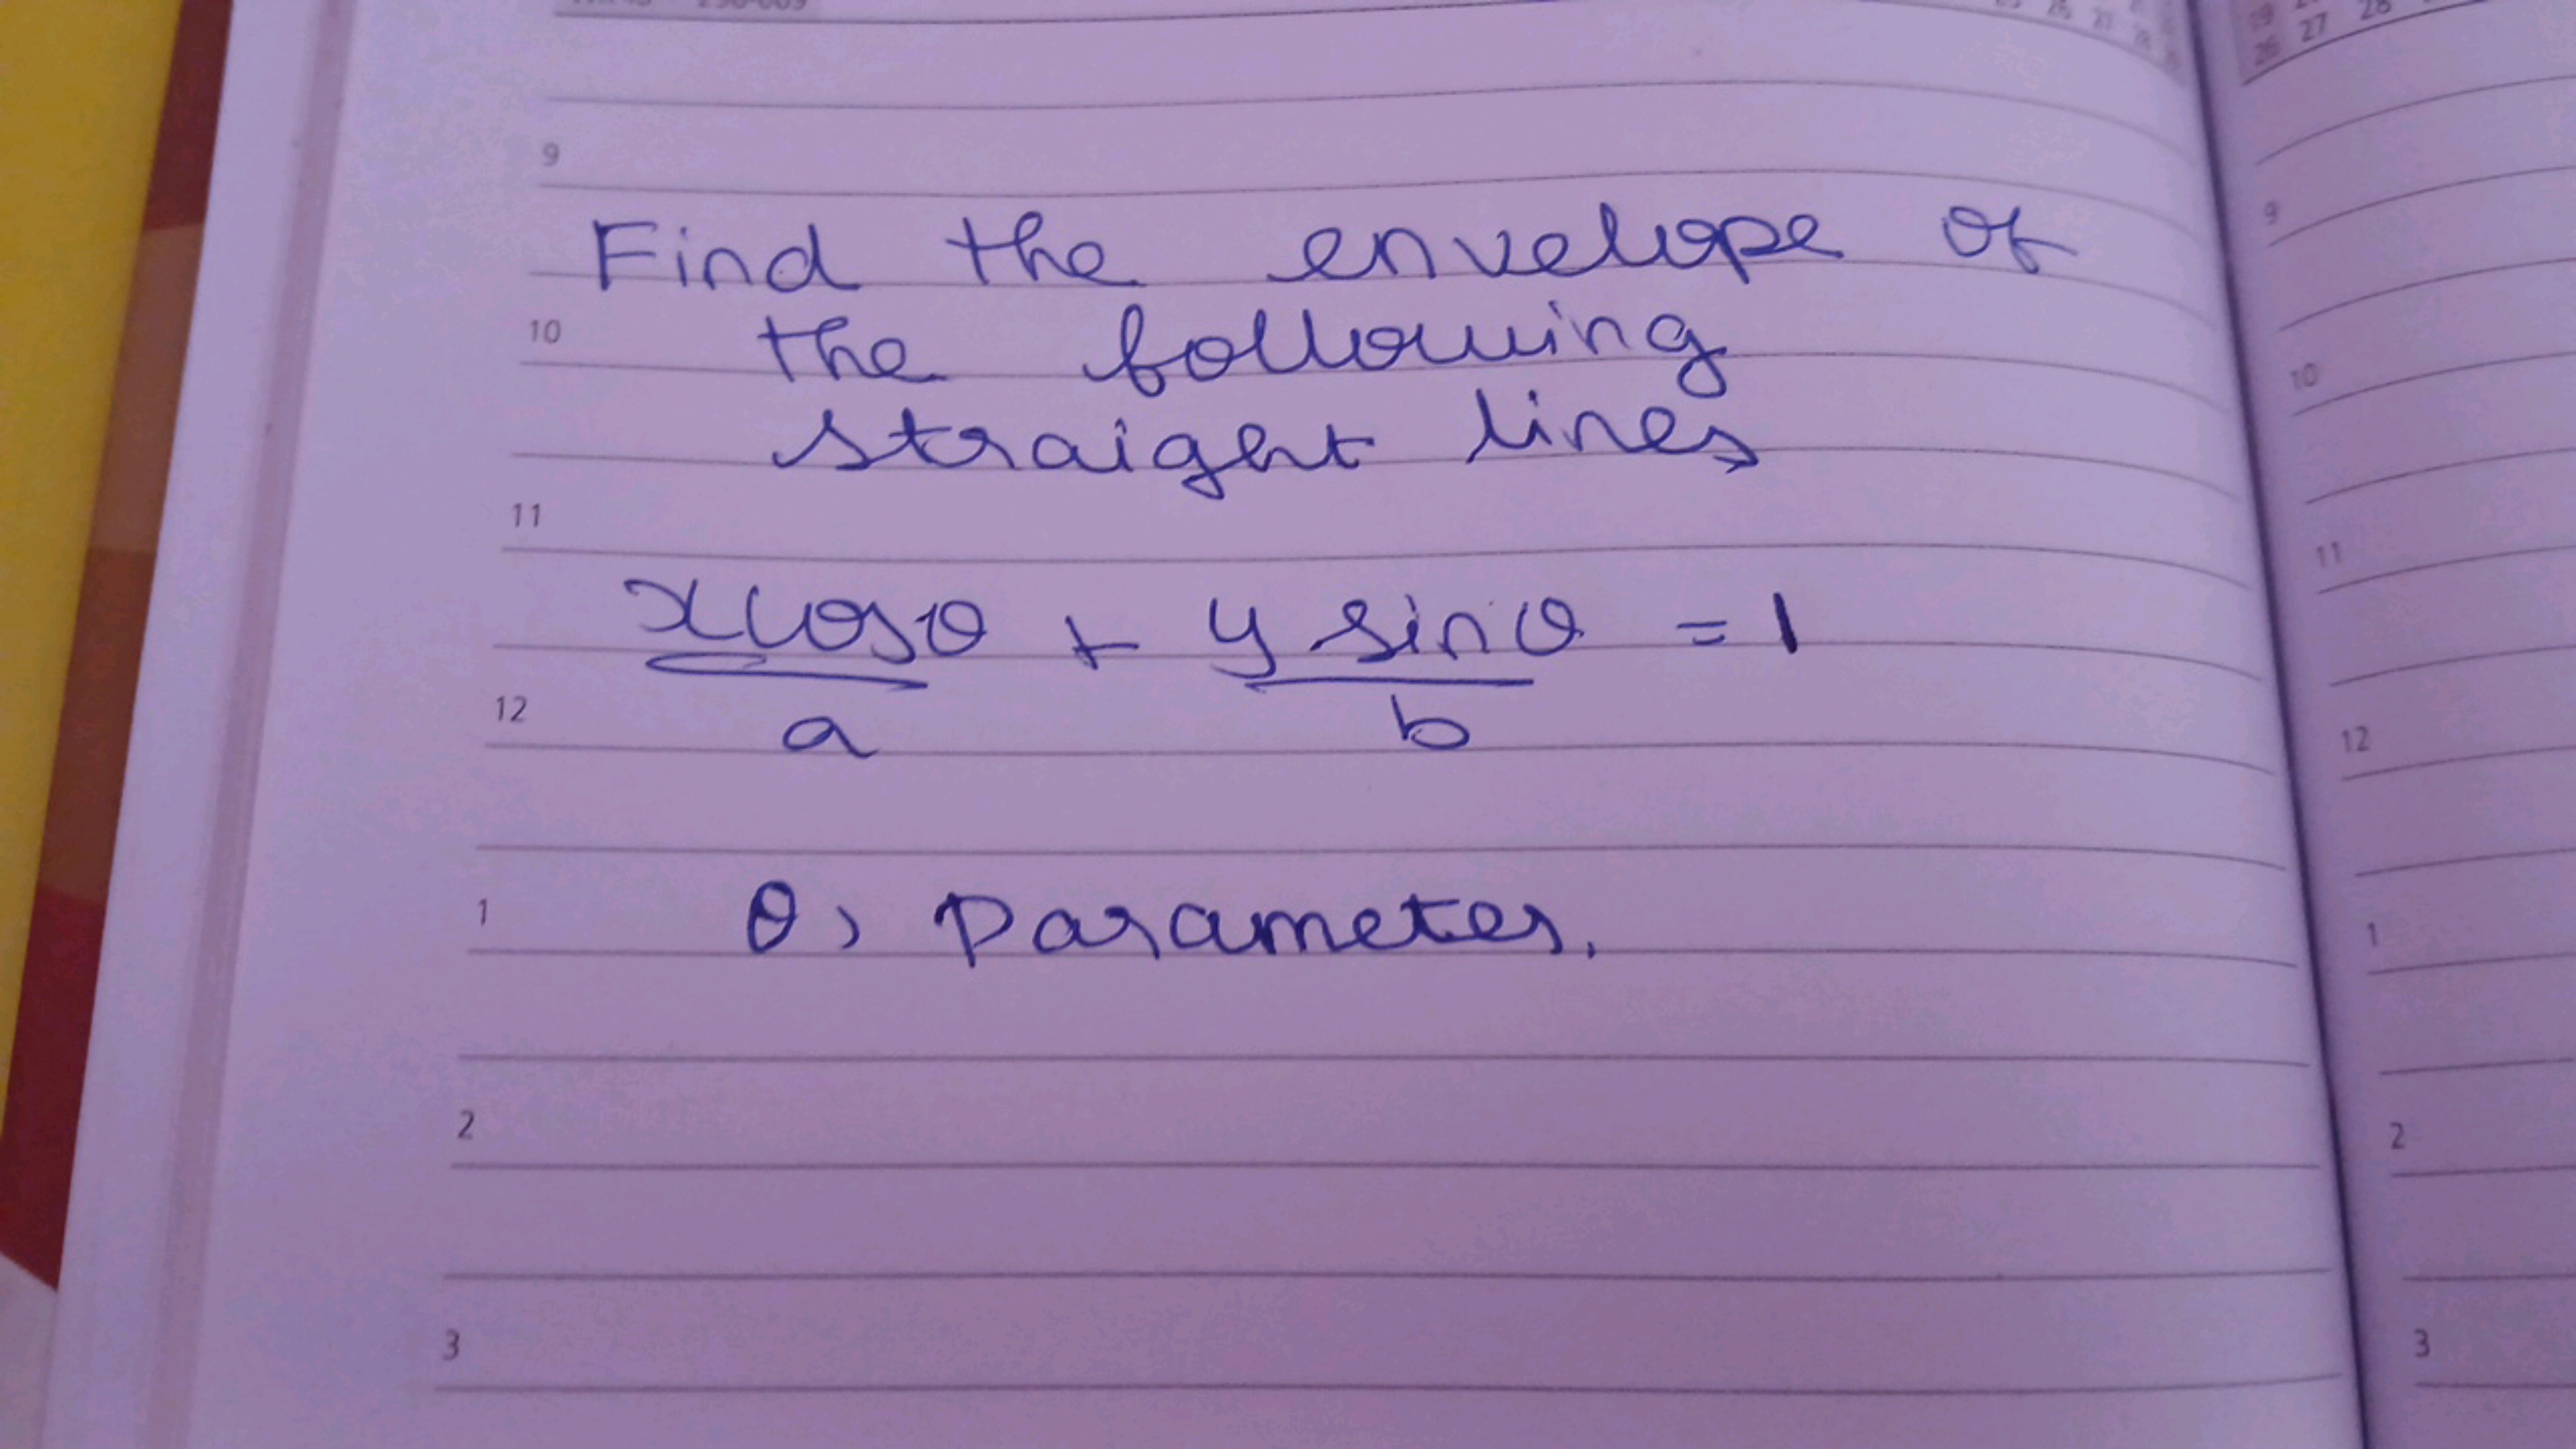 9
Find the envelope of
10
the following
straight lines
11
x cosθ + y sinθ = 1
12
a b
1
θ, parameter.
2
3
26 27 28
9
10
11
12
1
2
3